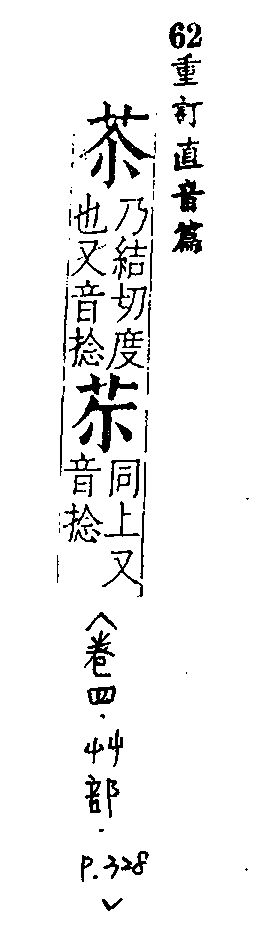 62重訂直音篇
苶
乃結切度
也又音捻
同上又
音捻
〈卷四.艸部.P.328〉